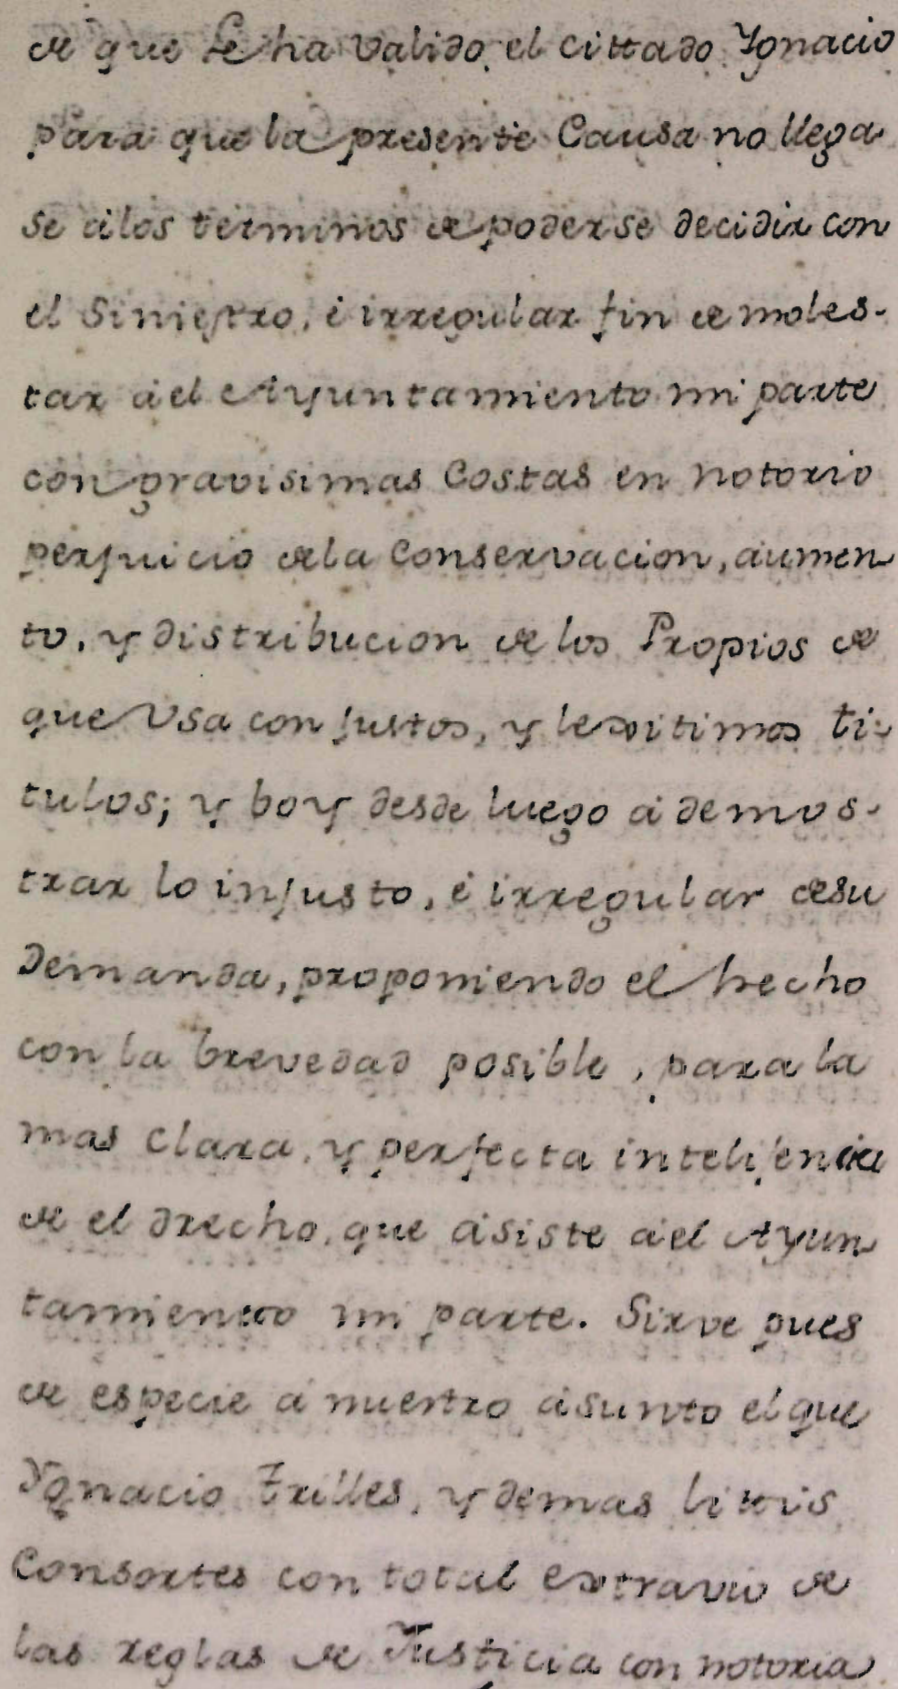 de que Se ha valido el cittado Ygnacio
para que la presente Causa no llega
se á los terminos de poderse decidir con
el Siniestro, é irregular fin de moles-
tar á el Ayuntamiento mi parte
con gravisimas Costas en notorio
perjuicio de la Conservacion, aumen
to, y distribucion de los Propios de
que Usa con justos, y lexitimos ti-
tulos; y boy desde luego á demos-
trar lo injusto, é irregular de su
Demanda, proponiendo el hecho
con la brevedad posible, para la
mas Clara, y perfecta intelijencia
de el drecho, que ásiste á el Ayun
tamiento mi parte. Sirve pues
de especie á nuestro ásunto el que
Ygnacio Trilles, y demas littis
Consortes con total extravio de
las reglas de Justicia con notoria